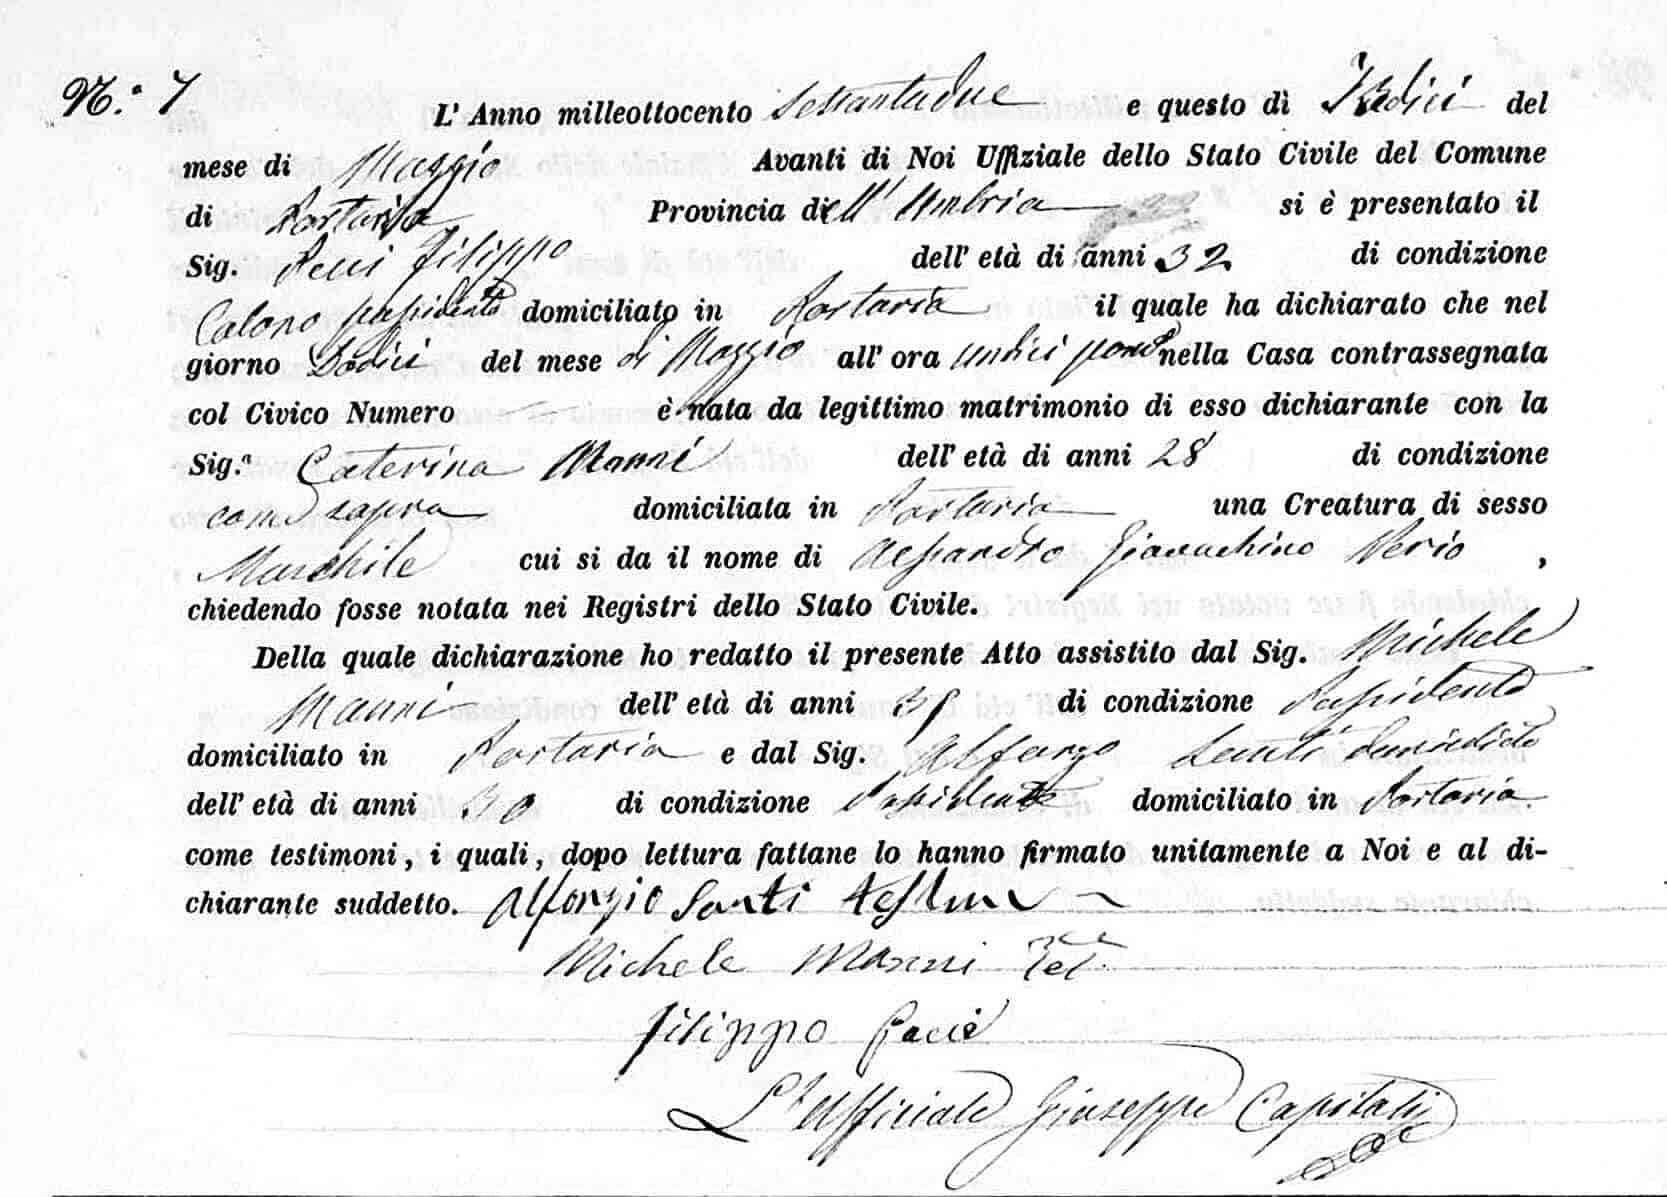 N.° 7
L' Anno milleottocento Settantadue e questo dì Tredici del
mese di Maggio Avanti di Noi Uffiziale dello Stato Civile del Comune
di Portaria Provincia dell' Umbria si è presentato il
Sig. Pacci Filippo dell' età di anni 32 di condizione
Colono possidente domiciliato in Portaria il quale ha dichiarato che nel
giorno Dodici del mese di Maggio all' ora undici pom.e nella Casa contrassegnata
col Civico Numero è nata da legittimo matrimonio di esso dichiarante con la
Sig.a Caterina Manni dell' età di anni 28 di condizione
come sopra domiciliata in Portaria una Creatura di sesso
Maschile cui si da il nome di Alessandro Giovachino Nerio ,
chiedendo fosse notata nei Registri dello Stato Civile.
Della quale dichiarazione ho redatto il presente Atto assistito dal Sig. Michele
Manni dell' età di anni di condizione Possidente
domiciliato in Portaria e dal Sig. Alfonzo Santi
dell' età di anni 30 di condizione Possidente domiciliato in Portaria
come testimoni, i quali, dopo lettura fattane lo hanno firmato unitamente a Noi e al di-
chiarante suddetto. Alfonzio Santi
Michele Manni
Filippo Pacci
L'Ufficiale Giuseppe Capitali